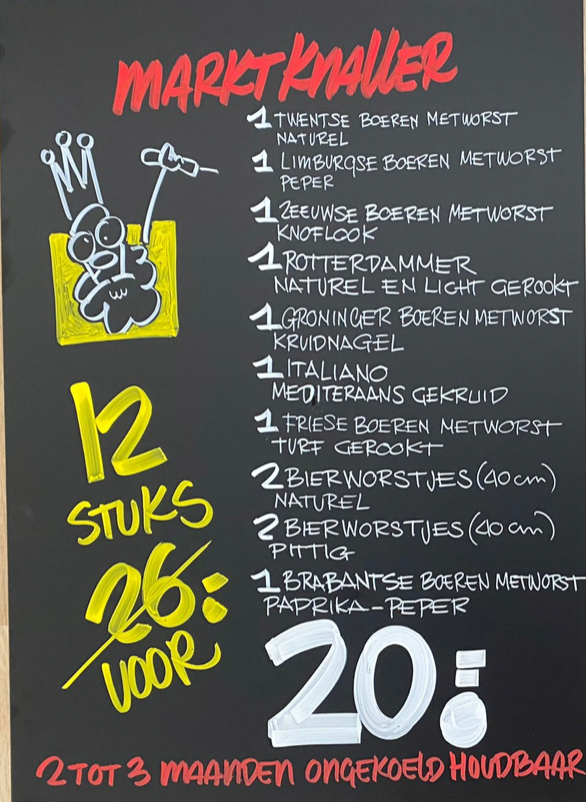 MARKTKNALLER
1 TWENTSE BOEREN METWORST
NATUREL
1 LIMBURGSE BOEREN METWORST
PEPER
1 ZEEUWSE BOEREN METWORST
KNOFLOOK
1 ROTTERDAMMER
NATUREL EN LICHT GEROOKT
1 GRONINGER BOEREN METWORST
KRUIDNAGEL
1 ITALIANO
MEDITERAANS GEKRUID
1 FRIESE BOEREN METWORST
TURF GEROOKT
2 BIERWORSTJES (40 cm)
NATUREL
2 BIERWORSTJES (40 cm)
PITTIG
1 BRABANTSE BOEREN METWORST
PAPRIKA-PEPER
12
STUKS
26:
VOOR
20:
2 TOT 3 MAANDEN ONGEKOELD HOUDBAAR